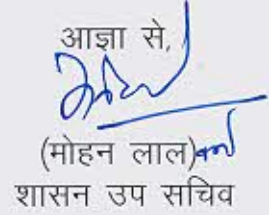 आज्ञा से,
(मोहन लाल)
शासन उप सचिव